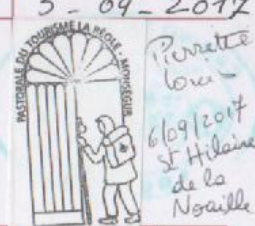 3-09-2017
PASTORALE DU TOURISME LA RÉOLE - MONSÉGUR
Pierrette
6/09/2017
St Hilaire
de la
Noaille